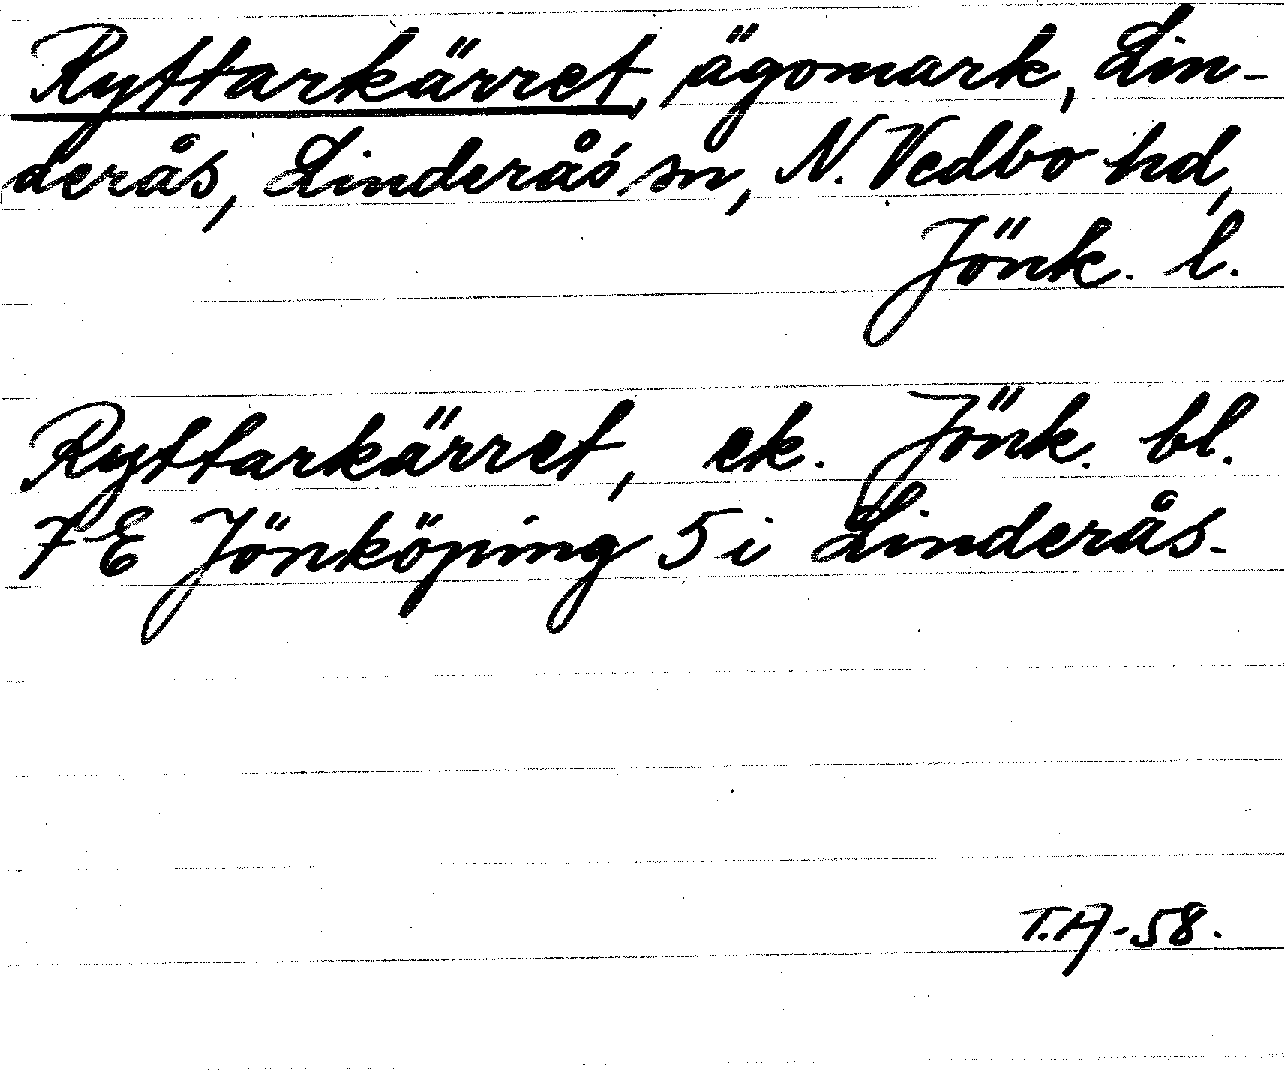 Ryttarkärret, ägomark, Lin-
derås, Linderås sn, N. Vedbo hd,
Jönk. l.
Ryttarkärret, ek. Jönk. bl.
7 E Jönköping 5 i Linderås.
T.A-58.